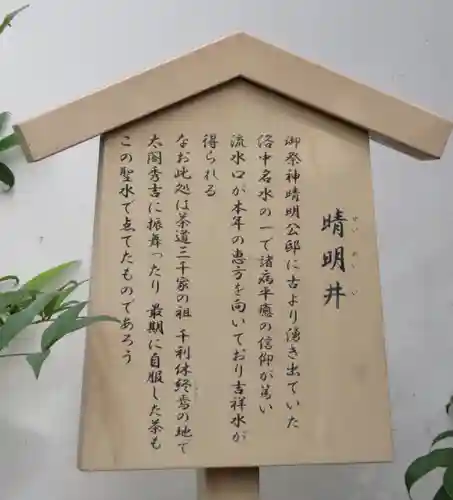 晴明井
せいめいい
御祭神晴明公邸に古より湧き出ていた
洛中名水の一で諸病平癒の信仰が篤い
流水口が本年の恵方を向いており吉祥水が
得られる
なお此処は茶道三千家の祖 千利休終焉の地で
太閤秀吉に振舞ったり 最期に自服した茶も
この聖水で点てたものであろう